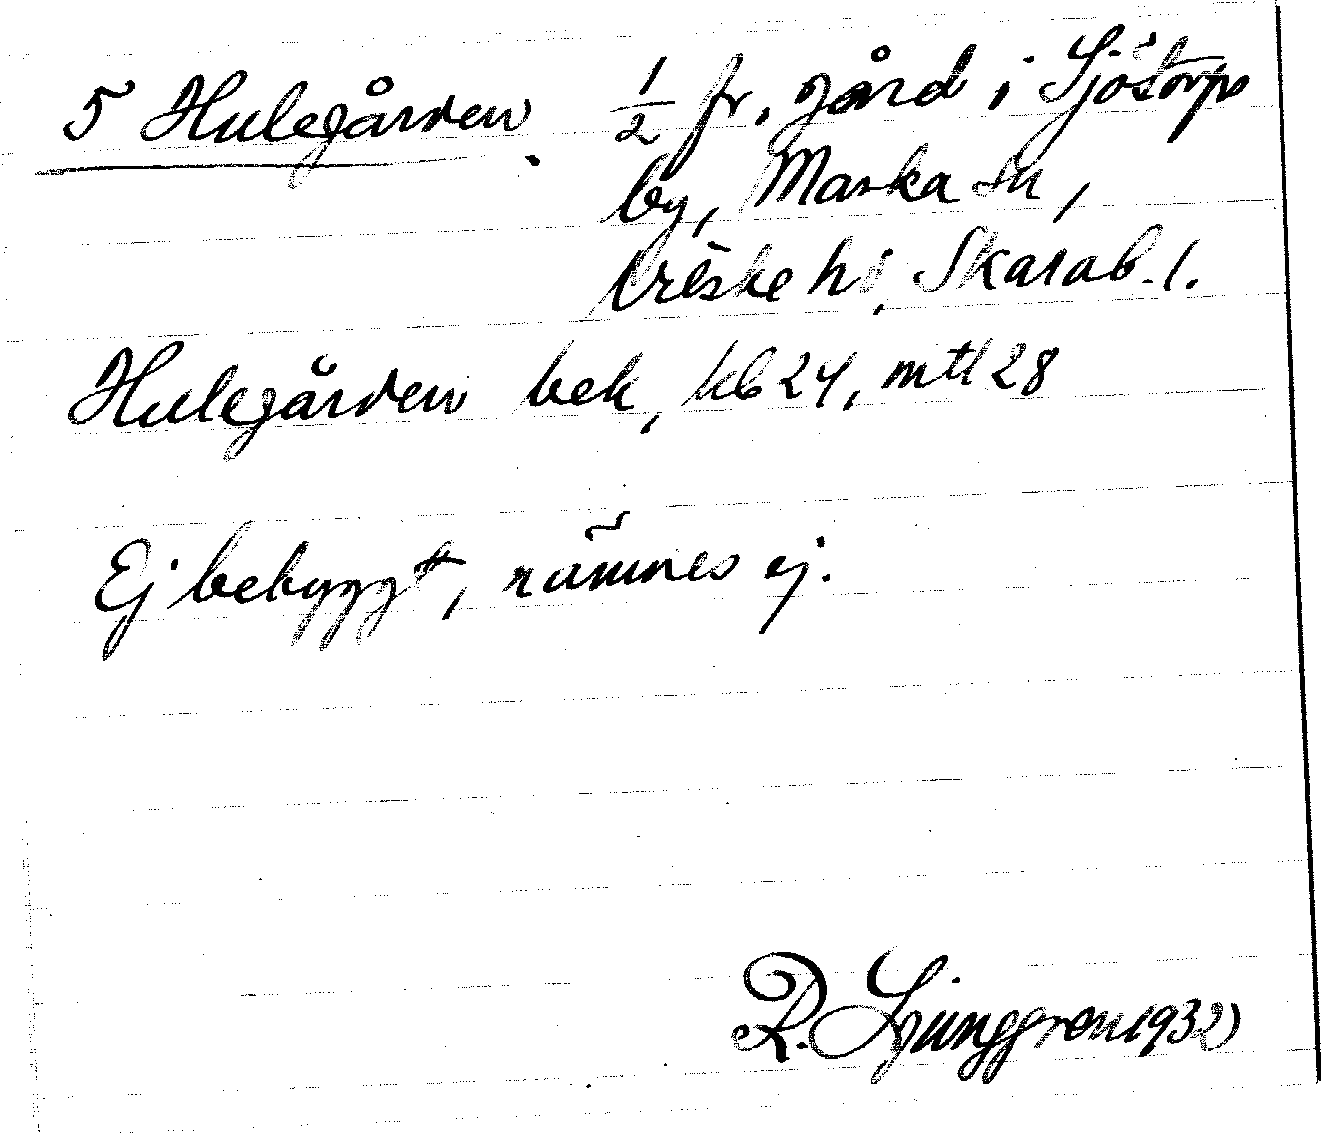 5 Hulegården. 1/2 fr. gård i Sjötorps
by, Marka sn,
Vilske hd, Skarab. l.
Hulegården bek, kb 24, mtl 28
Ej bebyggt, nämnes ej.
R. Ljunggren 1932)